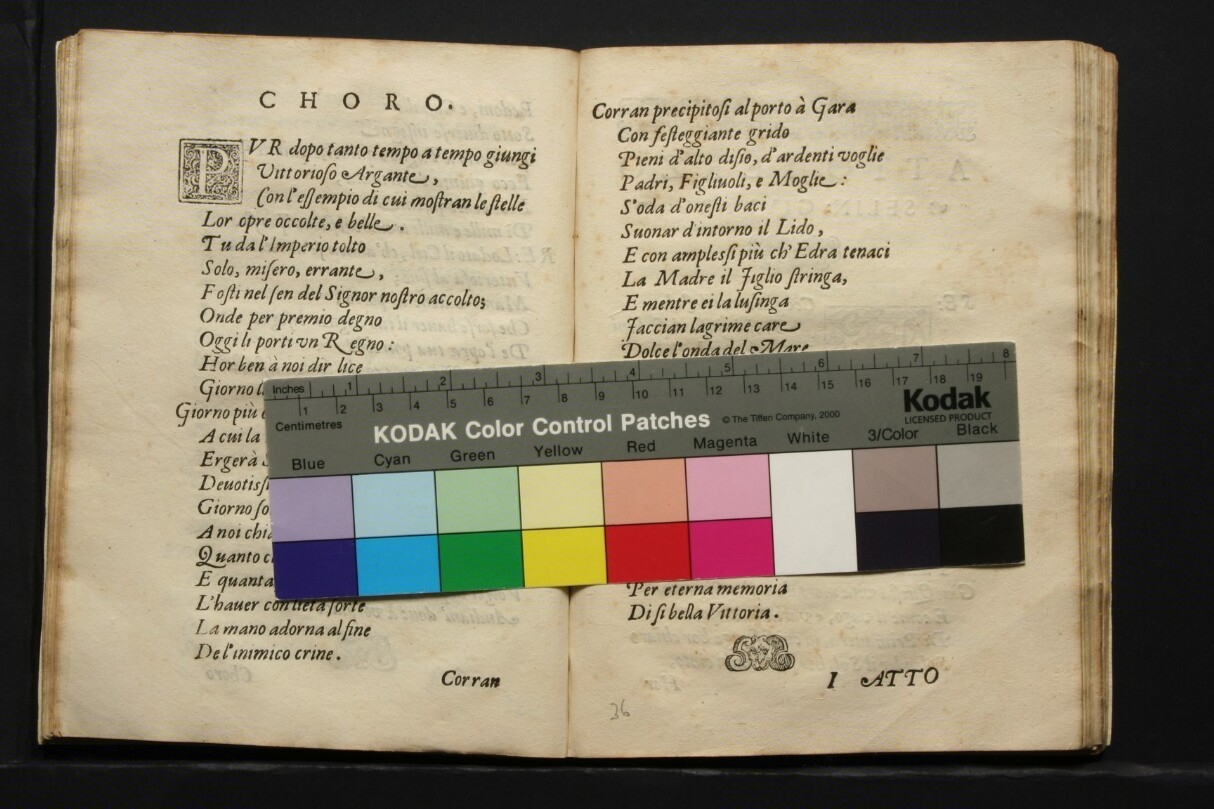 CHORO.
PVR dopo tanto tempo a tempo giungi
Vittorioso Argante,
Con l'essempio di cui mostran le stelle
Lor opre occolte, e belle.
Tu da l'Imperio tolto
Solo, misero, errante,
Fosti nel sen del Signor nostro accolto;
Onde per premio degno
Oggi li porti vn Regno:
Hor ben à noi dir lice
Giorno
Giorno più
A cui la
Ergerà
Deuotiss
Giorno so
A noi chia
Quanto
E quanta
L'hauer con lieta sorte
La mano adorna al fine
De l'inimico crine.
Corran
Corran precipitosi al porto à Gara
Con festeggiante grido
Pieni d'alto disio, d'ardenti voglie
Padri, Figliuoli, e Moglie:
S'oda d'onesti baci
Suonar d'intorno il Lido,
E con amplessi più ch'Edra tenaci
La Madre il Figlio stringa,
E mentre ei la lusinga
Faccian lagrime care
Dolce l'onda del Mare
Per eterna memoria
Di si bella Vittoria.
I ATTO
36
Inches 1 2 3 4 5 6 7 8
Centimetres 1 2 3 4 5 6 7 8 9 10 11 12 13 14 15 16 17 18 19
KODAK Color Control Patches © The Tiffen Company, 2000 Kodak
LICENSED PRODUCT
Blue Cyan Green Yellow Red Magenta White 3/Color Black